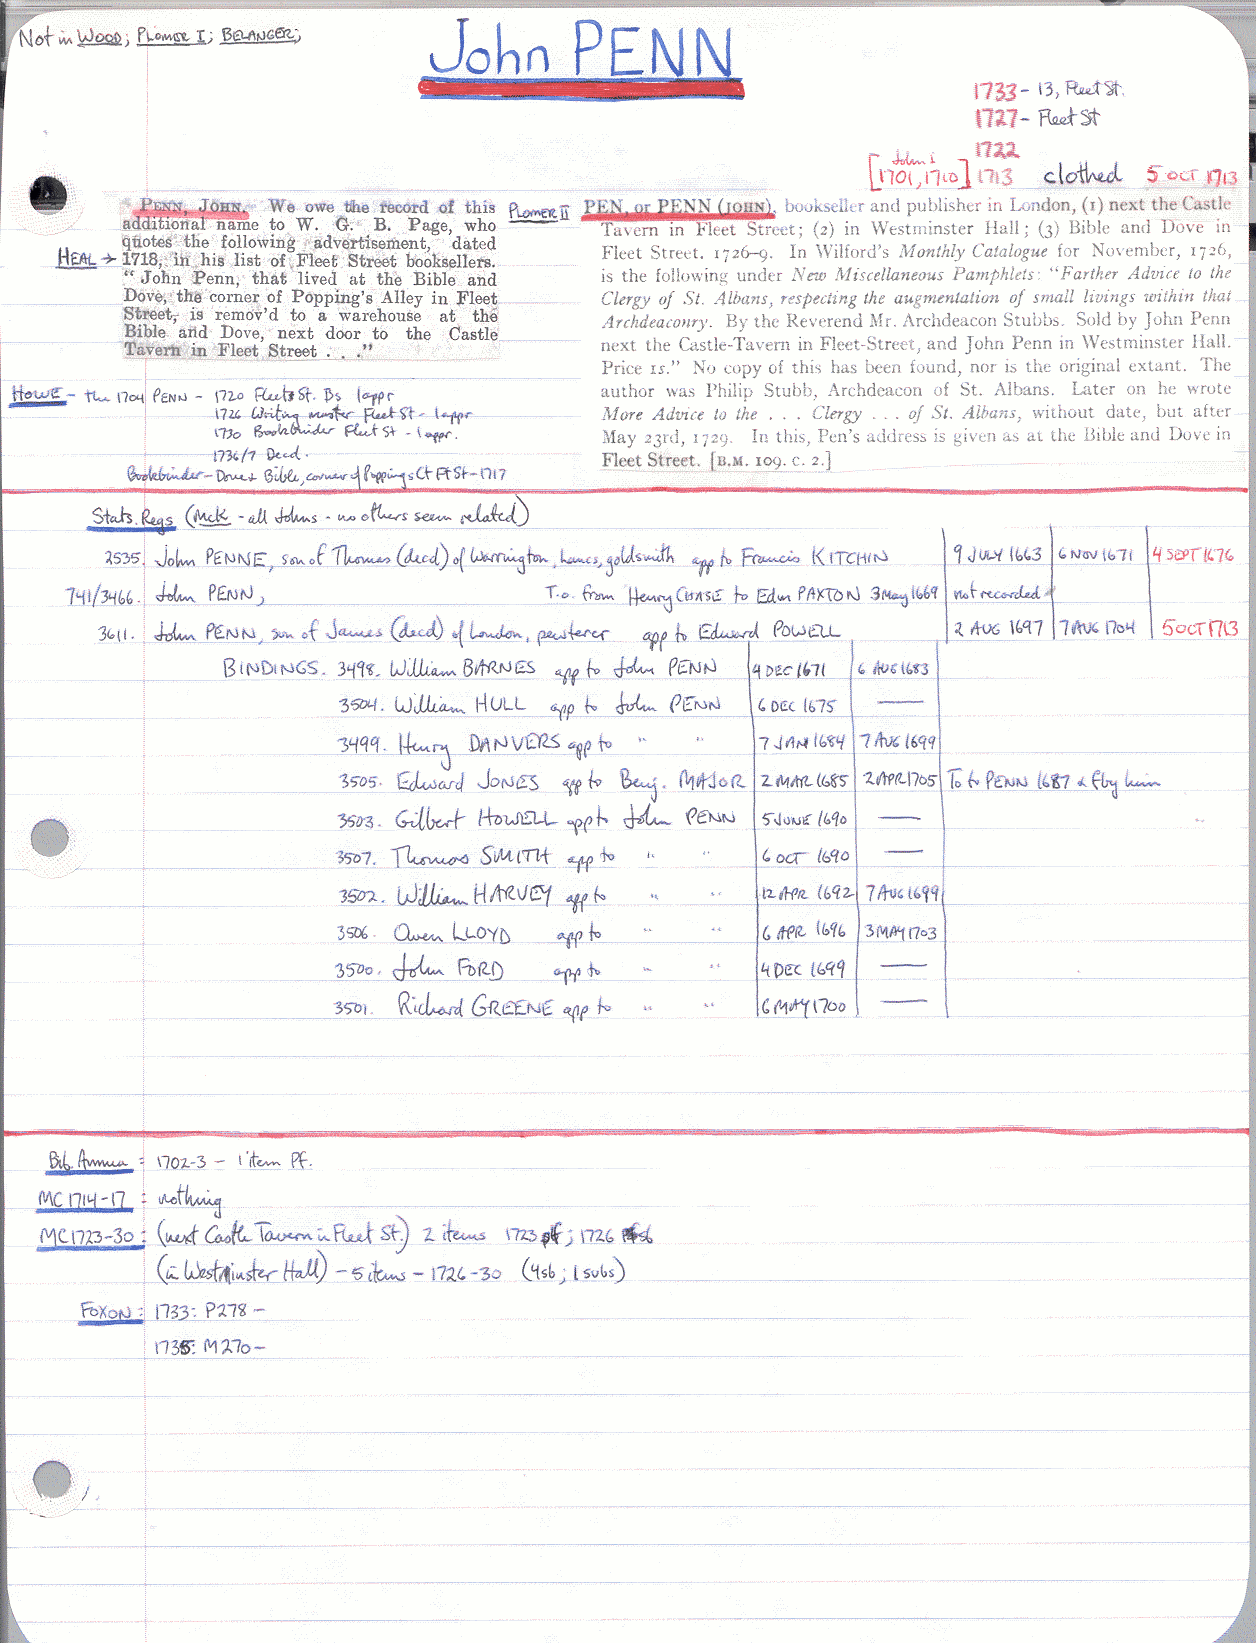 Not in WOOD; PLOMER I; BELANGER;
John PENN
1733 - 13, Fleet St.
1727 - Fleet St
1722
John I
[1701, 1710] 1713 clothed 5 OCT 1713
PENN, JOHN. We owe the record of this
additional name to W. G. B. Page, who
quotes the following advertisement, dated
HEAL → 1718, in his list of Fleet Street booksellers.
"John Penn, that lived at the Bible and
Dove, the corner of Popping's Alley in Fleet
Street, is remov'd to a warehouse at the
Bible and Dove, next door to the Castle
Tavern in Fleet Street . . ."
PLOMER II
PEN, or PENN (JOHN), bookseller and publisher in London, (1) next the Castle
Tavern in Fleet Street; (2) in Westminster Hall; (3) Bible and Dove in
Fleet Street. 1726–9. In Wilford's Monthly Catalogue for November, 1726,
is the following under New Miscellaneous Pamphlets: "Farther Advice to the
Clergy of St. Albans, respecting the augmentation of small livings within that
Archdeaconry. By the Reverend Mr. Archdeacon Stubbs. Sold by John Penn
next the Castle-Tavern in Fleet-Street, and John Penn in Westminster Hall.
Price 1s." No copy of this has been found, nor is the original extant. The
author was Philip Stubb, Archdeacon of St. Albans. Later on he wrote
More Advice to the . . . Clergy . . . of St. Albans, without date, but after
May 23rd, 1729. In this, Pen's address is given as at the Bible and Dove in
Fleet Street. [B.M. 109. c. 2.]
HOWE - the 1704 PENN - 1720 Fleet St. Bs 1appr
1726 Writing master Fleet St - 1appr
1730 Bookbinder Fleet St - 1appr.
1736/7 Decd.
Bookbinder - Dove & Bible, corner of Poppings Ct Ft St - 1717
Stats. Regs (McK - all Johns - no others seem related)
2535. John PENNE, son of Thomas (decd) of Warrington, Lancs, goldsmith app to Francis KITCHIN 9 JULY 1663 6 NOV 1671 4 SEPT 1676
741/3466. John PENN, T.o. from Henry CHASE to Edm PAXTON 3 May 1669 not recorded
3611. John PENN, son of James (decd) of London, pewterer app to Edward POWELL 2 AUG 1697 7 AUG 1704 5 OCT 1713
BINDINGS. 3498. William BARNES app to John PENN 4 DEC 1671 6 AUG 1683
3504. William HULL app to John PENN 6 DEC 1675 —
3499. Henry DANVERS app to " " 7 JAN 1684 7 AUG 1699
3505. Edward JONES app to Benj. MAJOR 2 MAR 1685 2 APR 1705 To to PENN 1687 & f by him
3503. Gilbert HOWELL app to John PENN 5 JUNE 1690 —
3507. Thomas SMITH app to " " 6 OCT 1690 —
3502. William HARVEY app to " " 12 APR 1692 7 AUG 1699
3506. Owen LLOYD app to " " 6 APR 1696 3 MAY 1703
3500. John FORD app to " " 4 DEC 1699 —
3501. Richard GREENE app to " " 6 MAY 1700 —
Bib. Annua: 1702-3 - 1 item Pf.
MC 1714-17: nothing
MC 1723-30: (next Castle Tavern in Fleet St.) 2 items 1723 pf; 1726 sb
(in Westminster Hall) - 5 items - 1726-30 (4sb; 1 subs)
FOXON: 1733: P278 -
1735: M270 -